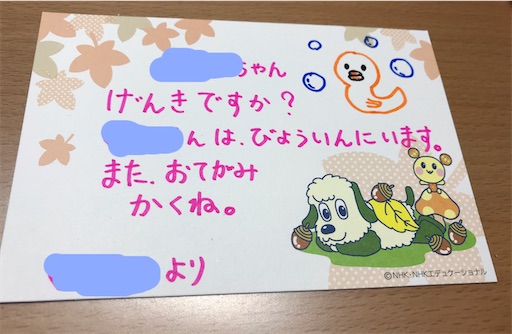 ちゃん
げんきですか？
んは、びょういんにいます。
また、おてがみ
かくね。
より
©NHK・NHKエデュケーショナル